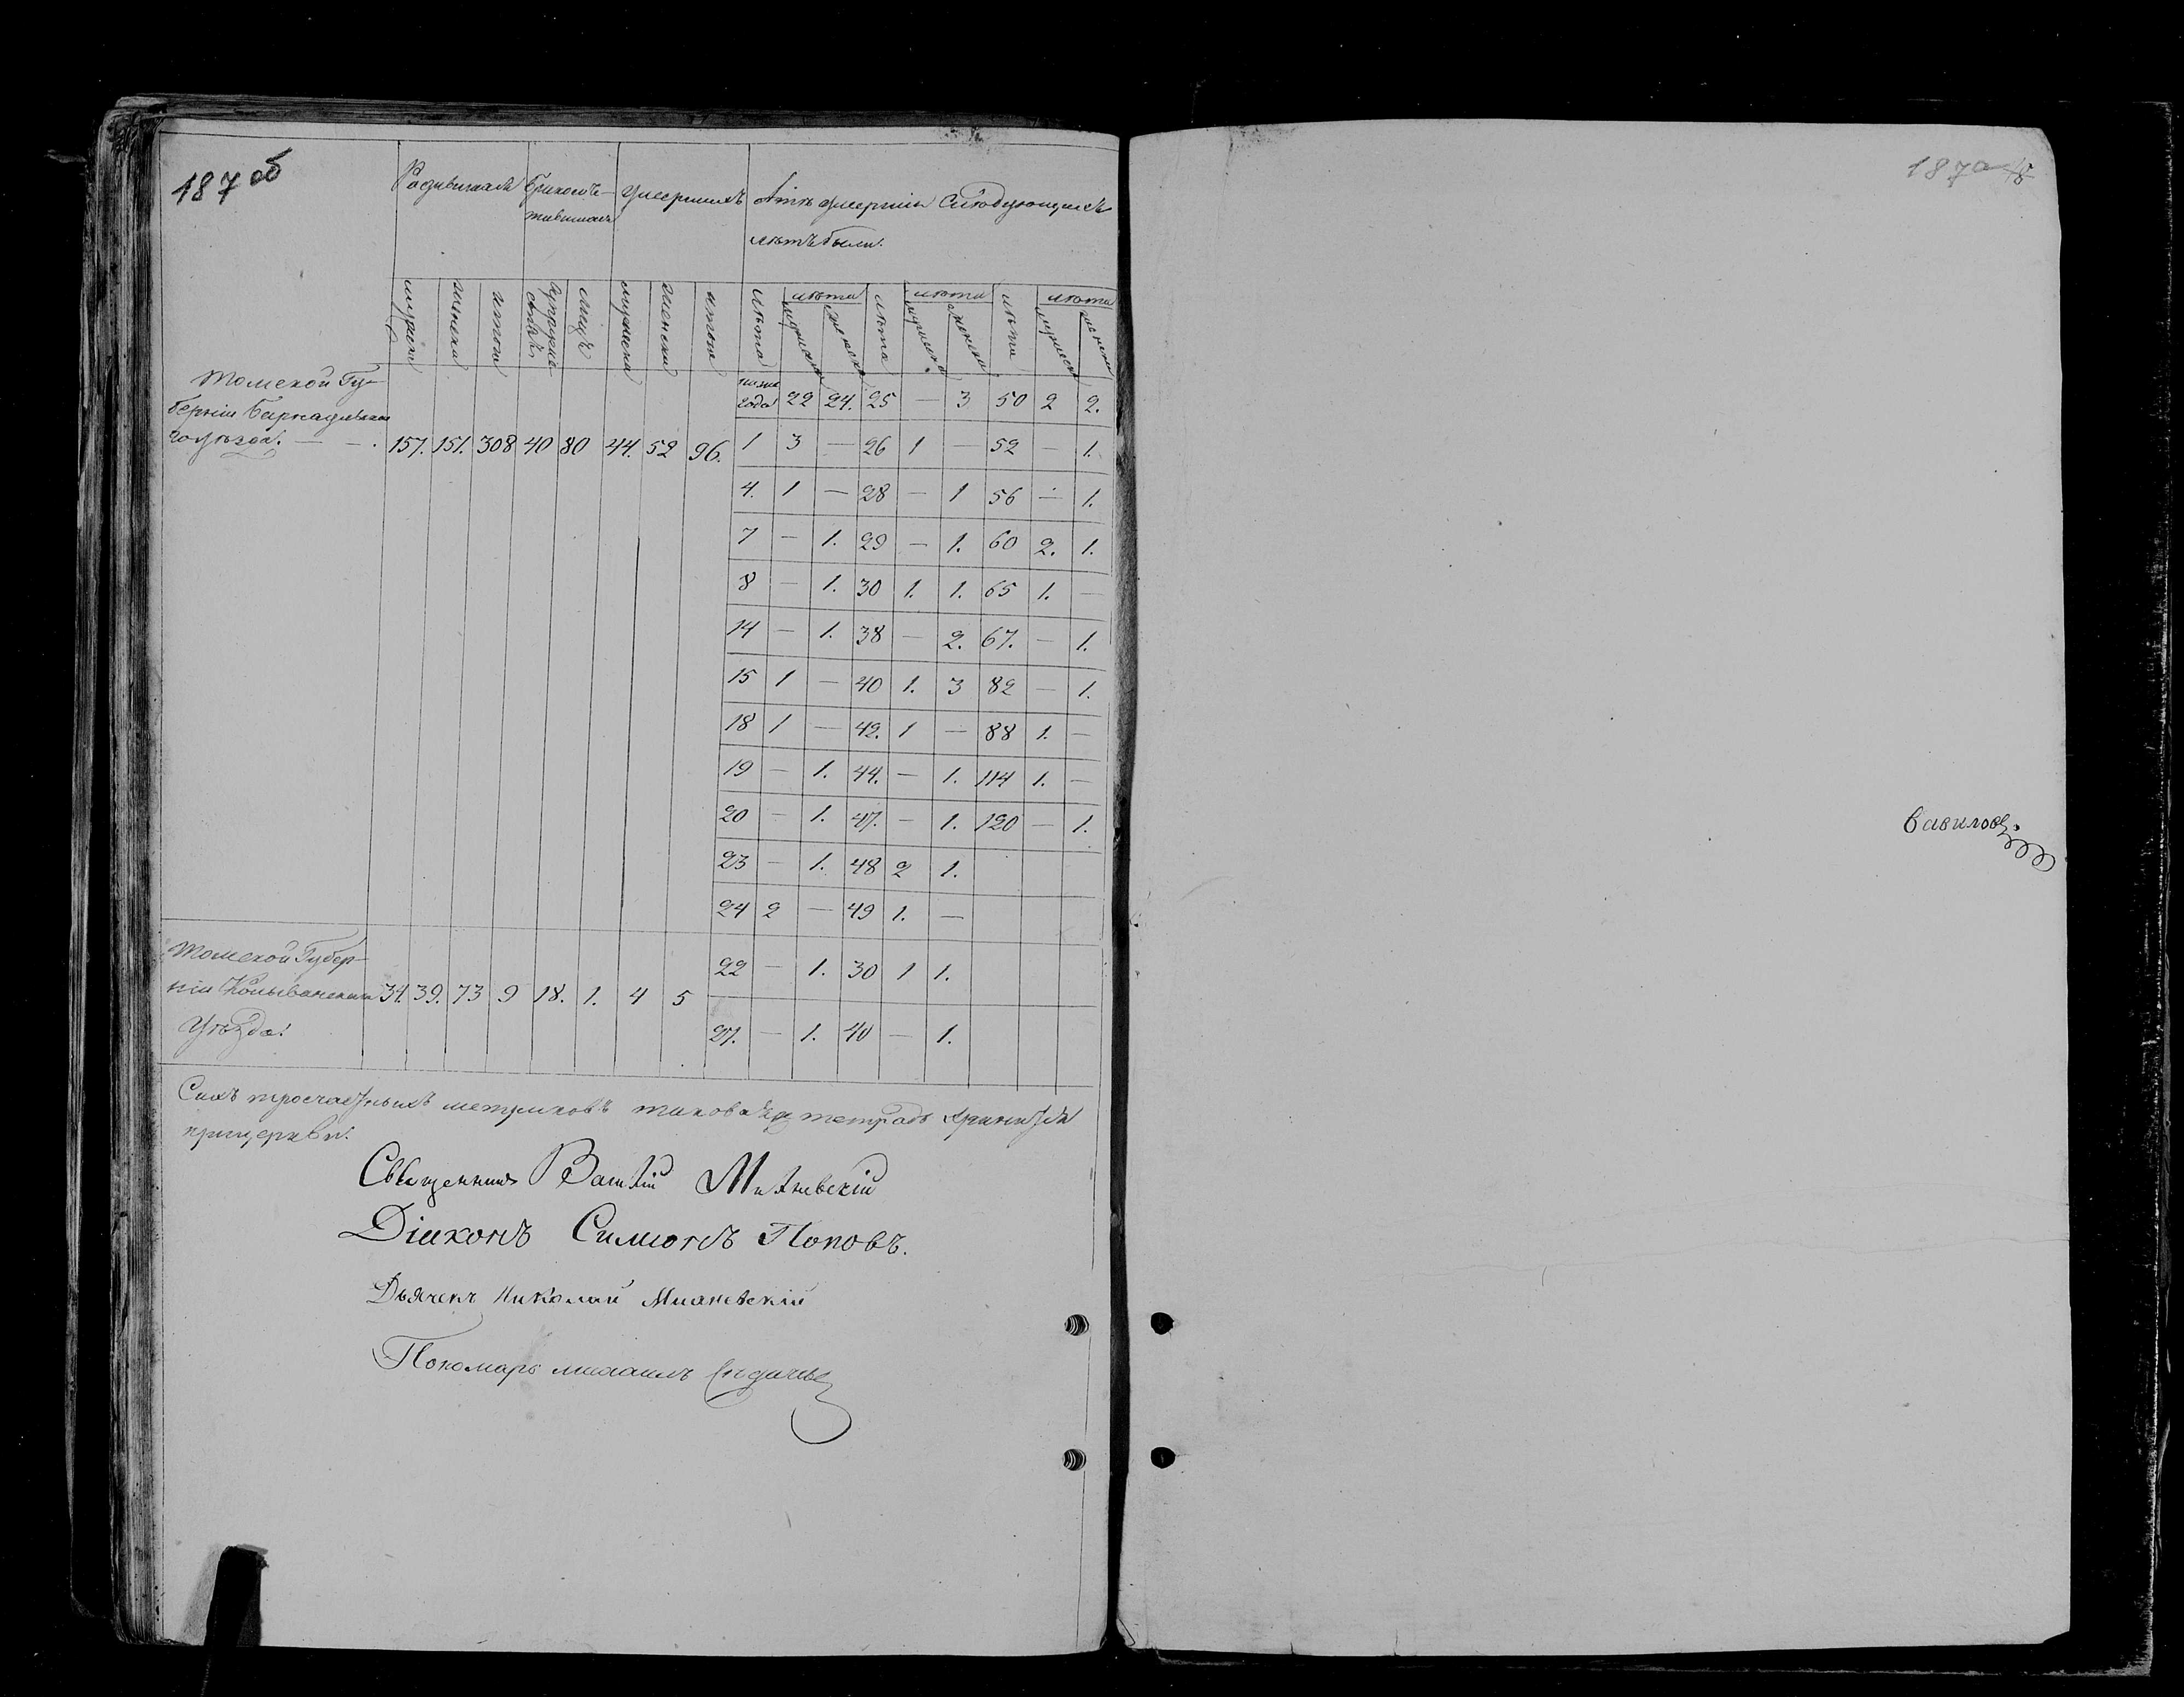 187 об
Родившихся Бракосоче- Умершихъ Лѣта умершихъ Слѣдующихъ
тавшихся лѣтъ были.
мужеска женска итого супружествъ лицъ мужеска женска итого лѣта лѣта лѣта лѣта лѣта лѣта
мужеска женска мужеска женска мужеска женска
Томской Гу-
берніи Барнаульска
го уѣзда. — — . 157. 151. 308 40 80 44. 52 96.
года 22 24. 25 — 3 50 2 2.
1 3 — 26 1 — 52 — 1.
4. 1 — 28 — 1 56 — 1.
7 — 1. 29 — 1. 60 2. 1.
8 — 1. 30 1. 1. 65 1. —
14 — 1. 38 — 2. 67. — 1.
15 1 — 40 1. 3 82 — 1.
18 1 — 42. 1 — 88 1. —
19 — 1. 44. — 1. 114 1. —
20 — 1. 47. — 1. 120 — 1.
23 — 1. 48 2 1.
24 2 — 49 1. —
Томской Губер-
ніи Колыванскаго 34. 39. 73 9 18. 1. 4 5
Уѣзда.
22 — 1. 30 1 1.
27. — 1. 40 — 1.
Сихъ троечастныхъ метриковъ таковая тетрадь хранится
при церкви.
Священникъ Василій
Діаконъ Симеонъ Поповъ.
Дьячекъ Николай
Пономарь Михаилъ
187а
Вавиловъ.